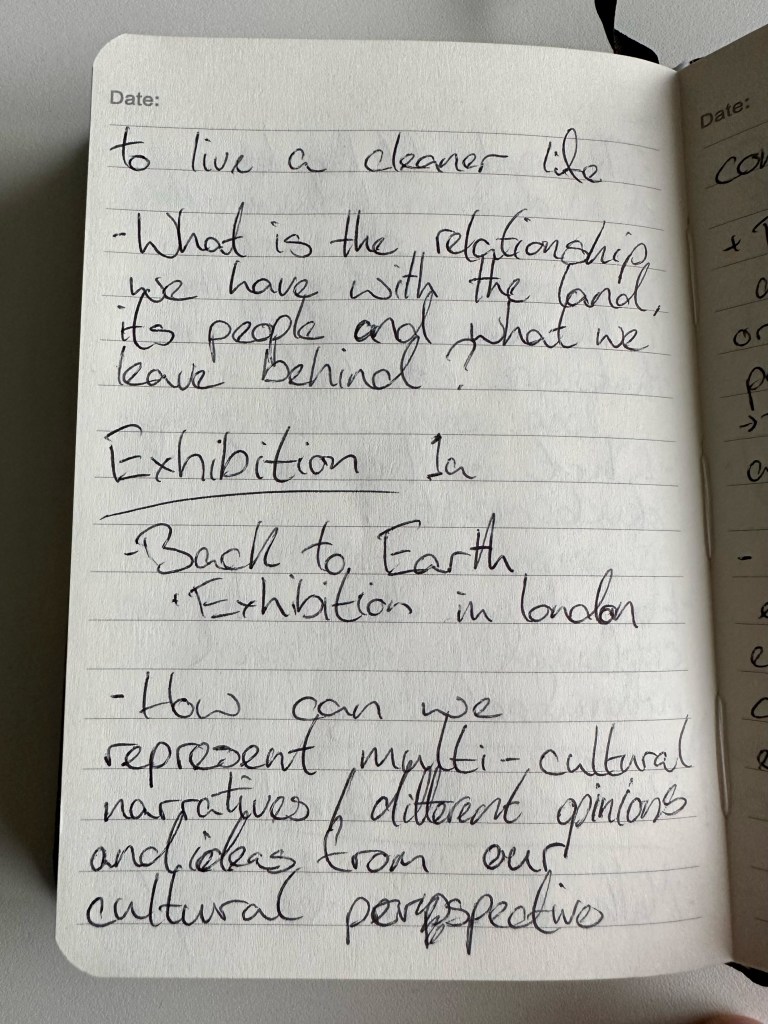 Date:
to live a cleaner life
- What is the relationship
we have with the land,
its people and what we
leave behind ?
Exhibition 1a
- Back to Earth
• Exhibition in london
- How can we
represent multi-cultural
narratives / different opinions
and ideas from our
cultural perspective
Date:
+
or
-